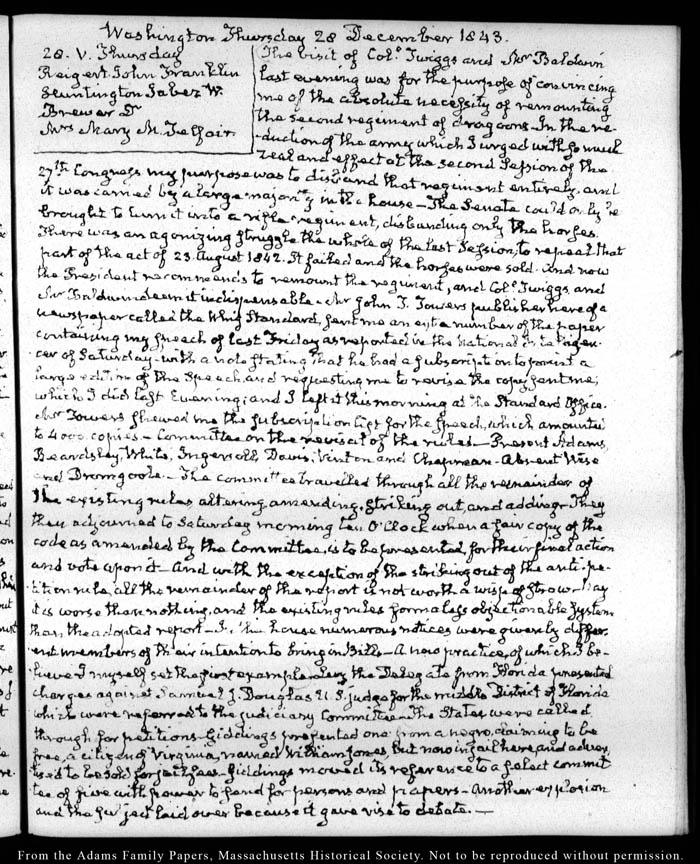 Washington Thursday 28 December 1843.
28. V. Thursday
Reigert John Franklin
Huntington Jabez W.
Brewer D
Mrs Mary M. Telfair
The visit of Col.o Twiggs and Mr Baldwin
last evening was for the purpose of convincing
me of the absolute necessity of remounting
the second regiment of dragoons. In the re-
duction of the army which I urged with so much
zeal and effect at the second Session of the
27th Congress my purpose was to disband that regiment entirely, and
it was carried by a large majority in the house – The Senate could only be
brought to turn it into a rifle regiment, disbanding only the horses.
There was an agonizing struggle the whole of the last Session, to repeal that
part of the act of 23. August 1842. It failed and the horses were sold. And now
the President recommends to remount the regiment, and Col.o Twiggs, and
Mr Baldwin deem it indispensable – Mr John T. Towers publisher here of a
newspaper called the Whig Standard, sent me an extra number of the paper
containing my speech of last Friday as reported in the National Intelligen-
cer of Saturday – with a note stating that he had a subscription to print a
large edition of the Speech, and requesting me to revise the copy sent me;
which I did last Evening; and I left it this morning at the Standard Office.
Mr Towers shewed me the subscription list for the speech, which amounted
to 4000 copies. – Committee on the revisal of the rules – Present Adams,
Beardsley, White, Ingersoll, Davis, Vinton and Chapman – Absent Wise
and Dromgoole. – The committee travelled through all the remainder of
the existing rules, altering, amending, striking out, and adding – They
then adjourned to Saturday morning ten O'Clock when a fair copy of the
code as amended by the Committee, is to be presented, for their final action
and vote upon it – And with the exception of the striking out of the anti-pe-
tition rule, all the remainder of the report is not worth a wisp of straw – Nay
it is worse than nothing, and the existing rules form a less objectionable System
than the adopted report – In the house numerous notices were given by differ-
ent members of their intention to bring in Bills – A new practice, of which I be-
lieve I myself set the first example. Levy the Delegate from Florida presented
charges against Samuel J Douglas U.S. judge for the middle District of Florida
which were referred to the judiciary Committee – The States were called
through for petitions – Giddings presented one from a negro, claiming to be
free, a citizen of Virginia, named William Jones, but now in jail here, and adver-
tised to be sold for jail fees – Giddings moved its reference to a select commit-
tee of five with power to send for persons and papers – Another explosion
and the subject laid over because it gave rise to debate. –
From the Adams Family Papers, Massachusetts Historical Society. Not to be reproduced without permission